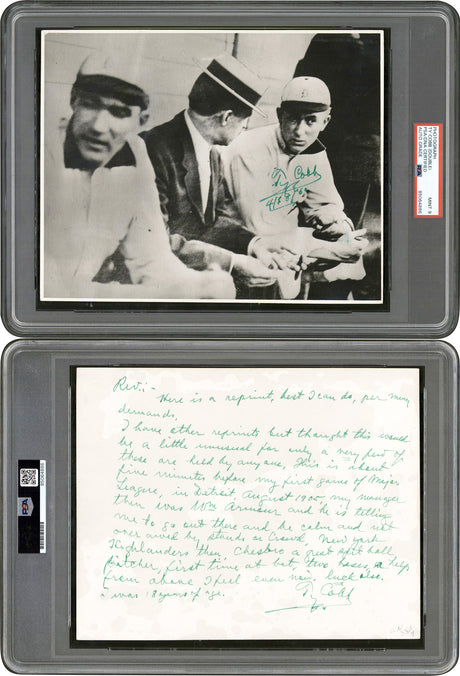 PHOTOGRAPH
TY COBB (DOUBLE)
PSA/DNA CERTIFIED
AUTO GRADE
MINT 9
85064886
PSA
Ty Cobb
PSA
85064886
Rev:-
Here is a reprint, best I can do, per many
demands.
I have other reprints but thought this would
be a little unusual for only a very few of
these are held by anyone. This is about
five minutes before my first game of Major
League, in Detroit, August 1905, my manager
then was Wm Armour and he is telling
me to go out there and be calm and not
over awed by stands or crowd, New York
Highlanders then, Chesbro a great spit ball
pitcher, first time at bat two bases, a help
from above I feel even now. luck also.
I was 18 years of age.
Ty Cobb